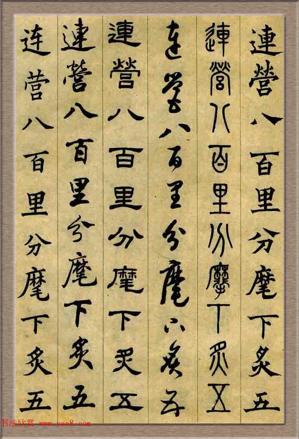 連營八百里分麾下炙五
連營八百里分麾下炙五
連營八百里分麾下炙五
連營八百里分麾下炙五
連營八百里分麾下炙五
连营八百里分麾下炙五